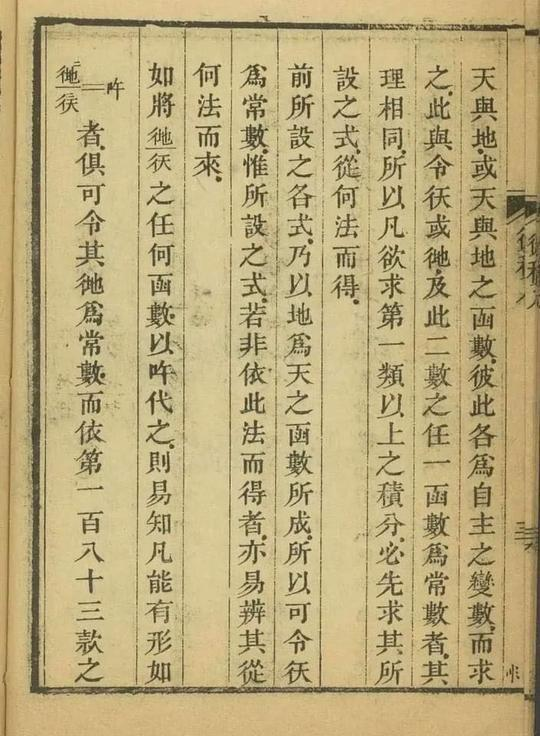 天與地、或天與地之函數、彼此各爲自主之變數、而求
之、此與令𢓍或𢓧、及此二數之任一函數爲常數者、其
理相同、所以凡欲求第一類以上之積分、必先求其所
設之式、從何法而得、
前所設之各式、乃以地爲天之函數所成、所以可令𢓍
爲常數、惟所設之式、若非依此法而得者、亦易辨其從
何法而來、
如將 之任何函數、以吘代之、則易知凡能有形如
者、俱可令其 爲常數、而依第一百八十三款之